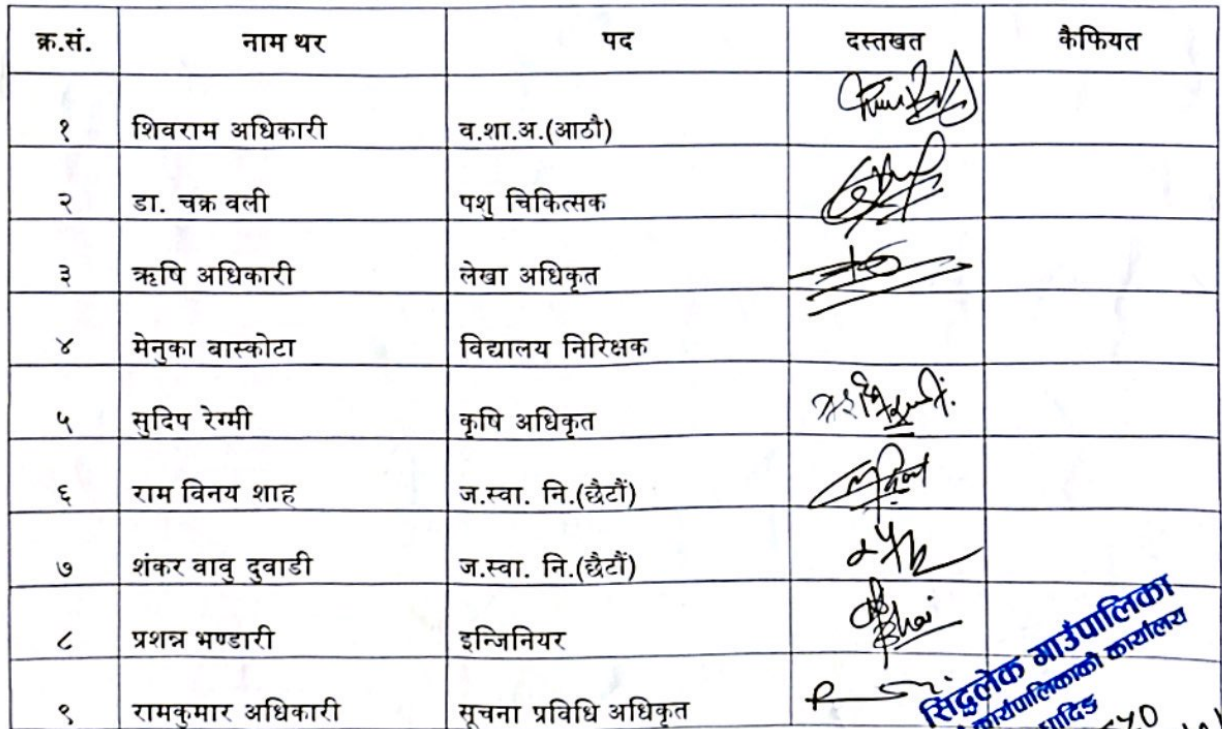 क्र.सं. नाम थर पद दस्तखत कैफियत
१ शिवराम अधिकारी व.शा.अ.(आठौ)
२ डा. चक्र वली पशु चिकित्सक
३ ऋषि अधिकारी लेखा अधिकृत
४ मेनुका वास्कोटा विद्यालय निरिक्षक
५ सुदिप रेग्मी कृषि अधिकृत
६ राम विनय शाह ज.स्वा. नि.(छैटौं)
७ शंकर वावु दुवाडी ज.स्वा. नि.(छैटौं)
८ प्रशन्न भण्डारी इन्जिनियर
९ रामकुमार अधिकारी सूचना प्रविधि अधिकृत
सिद्धलेक गाउँपालिका
कार्यपालिकाको कार्यालय